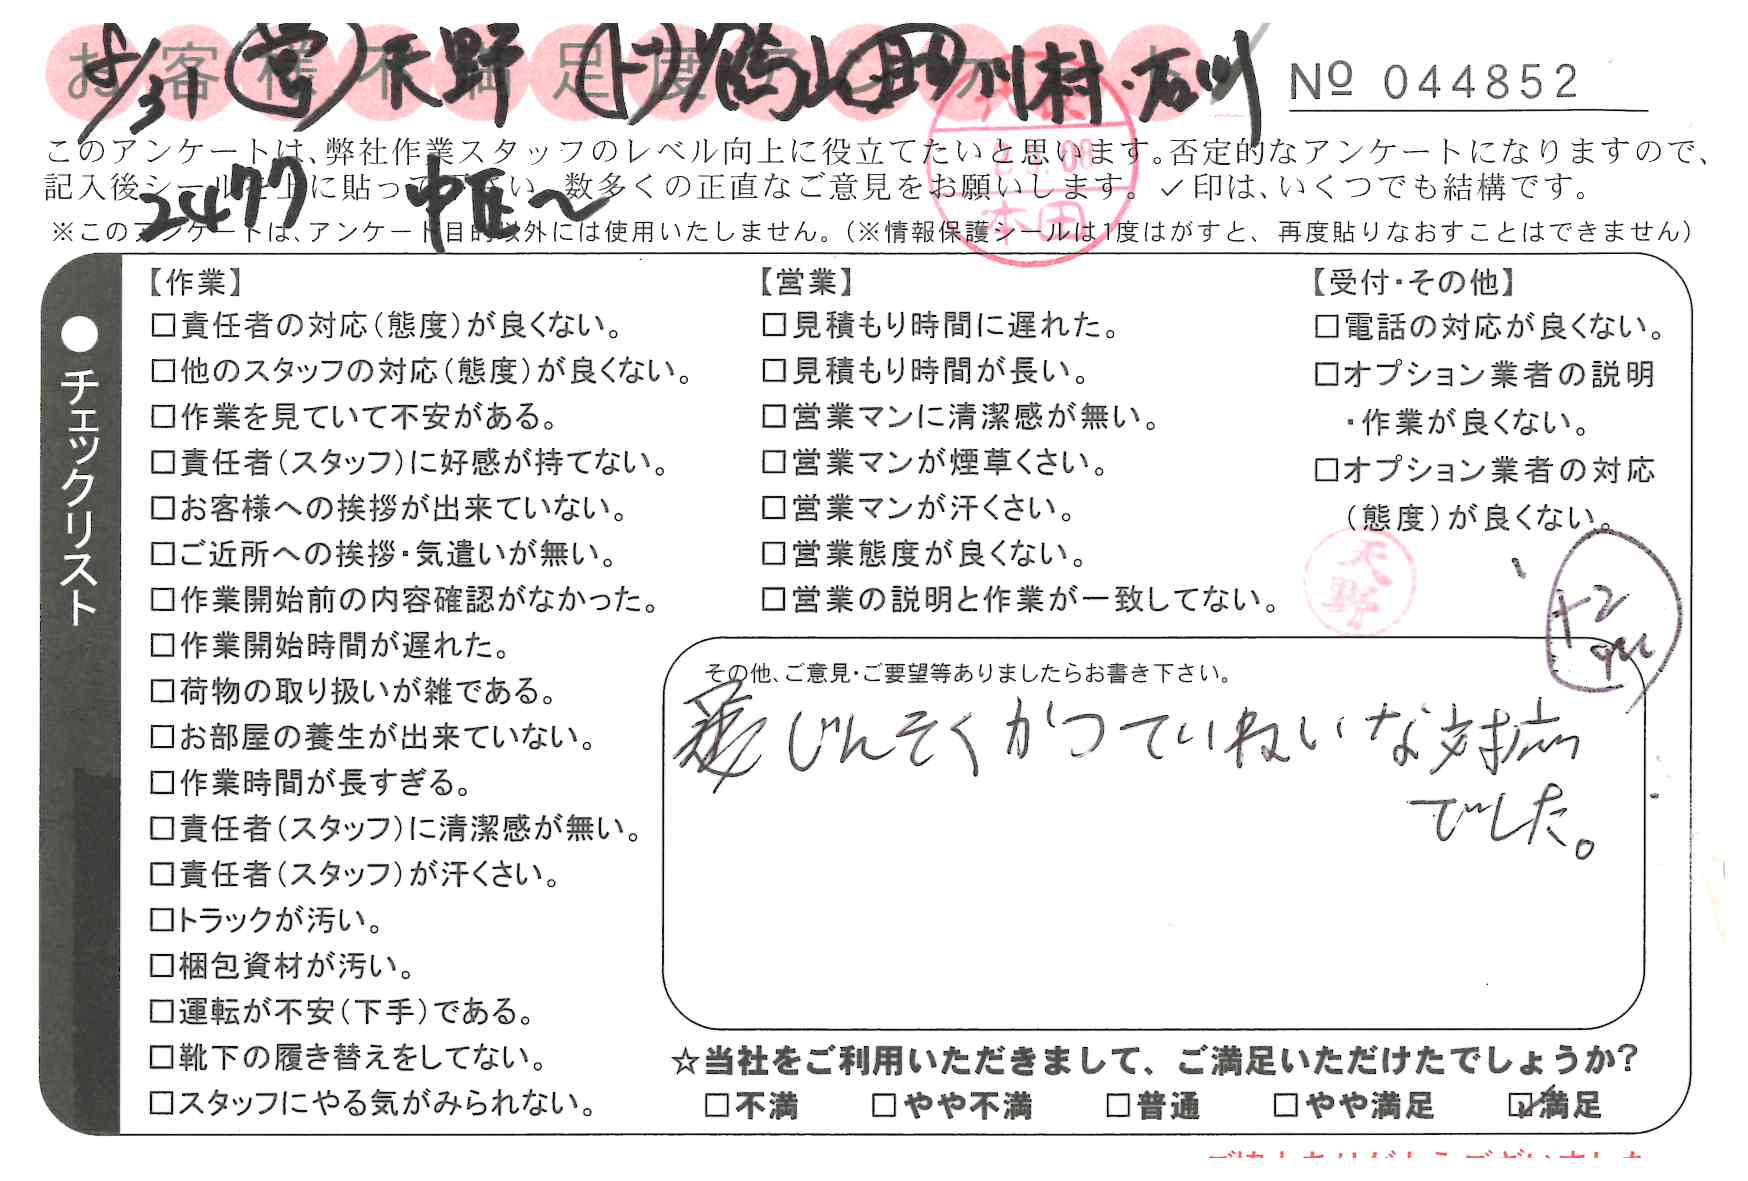 お客様不満足度アンケート
8/31 営 天野 ド 助 川村・石川
№ 044852
このアンケートは、弊社作業スタッフのレベル向上に役立てたいと思います。否定的なアンケートになりますので、
記入後シールを上に貼って下さい。数多くの正直なご意見をお願いします。✓印は、いくつでも結構です。
2477 中区〜
※このアンケートは、アンケート目的以外には使用いたしません。(※情報保護シールは1度はがすと、再度貼りなおすことはできません)
本田
●チェックリスト
【作業】
□責任者の対応(態度)が良くない。
□他のスタッフの対応(態度)が良くない。
□作業を見ていて不安がある。
□責任者(スタッフ)に好感が持てない。
□お客様への挨拶が出来ていない。
□ご近所への挨拶・気遣いが無い。
□作業開始前の内容確認がなかった。
□作業開始時間が遅れた。
□荷物の取り扱いが雑である。
□お部屋の養生が出来ていない。
□作業時間が長すぎる。
□責任者(スタッフ)に清潔感が無い。
□責任者(スタッフ)が汗くさい。
□トラックが汚い。
□梱包資材が汚い。
□運転が不安(下手)である。
□靴下の履き替えをしてない。
□スタッフにやる気がみられない。
【営業】
□見積もり時間に遅れた。
□見積もり時間が長い。
□営業マンに清潔感が無い。
□営業マンが煙草くさい。
□営業マンが汗くさい。
□営業態度が良くない。
□営業の説明と作業が一致してない。
【受付・その他】
□電話の対応が良くない。
□オプション業者の説明
・作業が良くない。
□オプション業者の対応
(態度)が良くない。
天野
+2
その他、ご意見・ご要望等ありましたらお書き下さい。
じんそくかつていねいな対応
でした。
☆当社をご利用いただきまして、ご満足いただけたでしょうか?
□不満 □やや不満 □普通 □やや満足 ☑満足
ご協力ありがとうございました